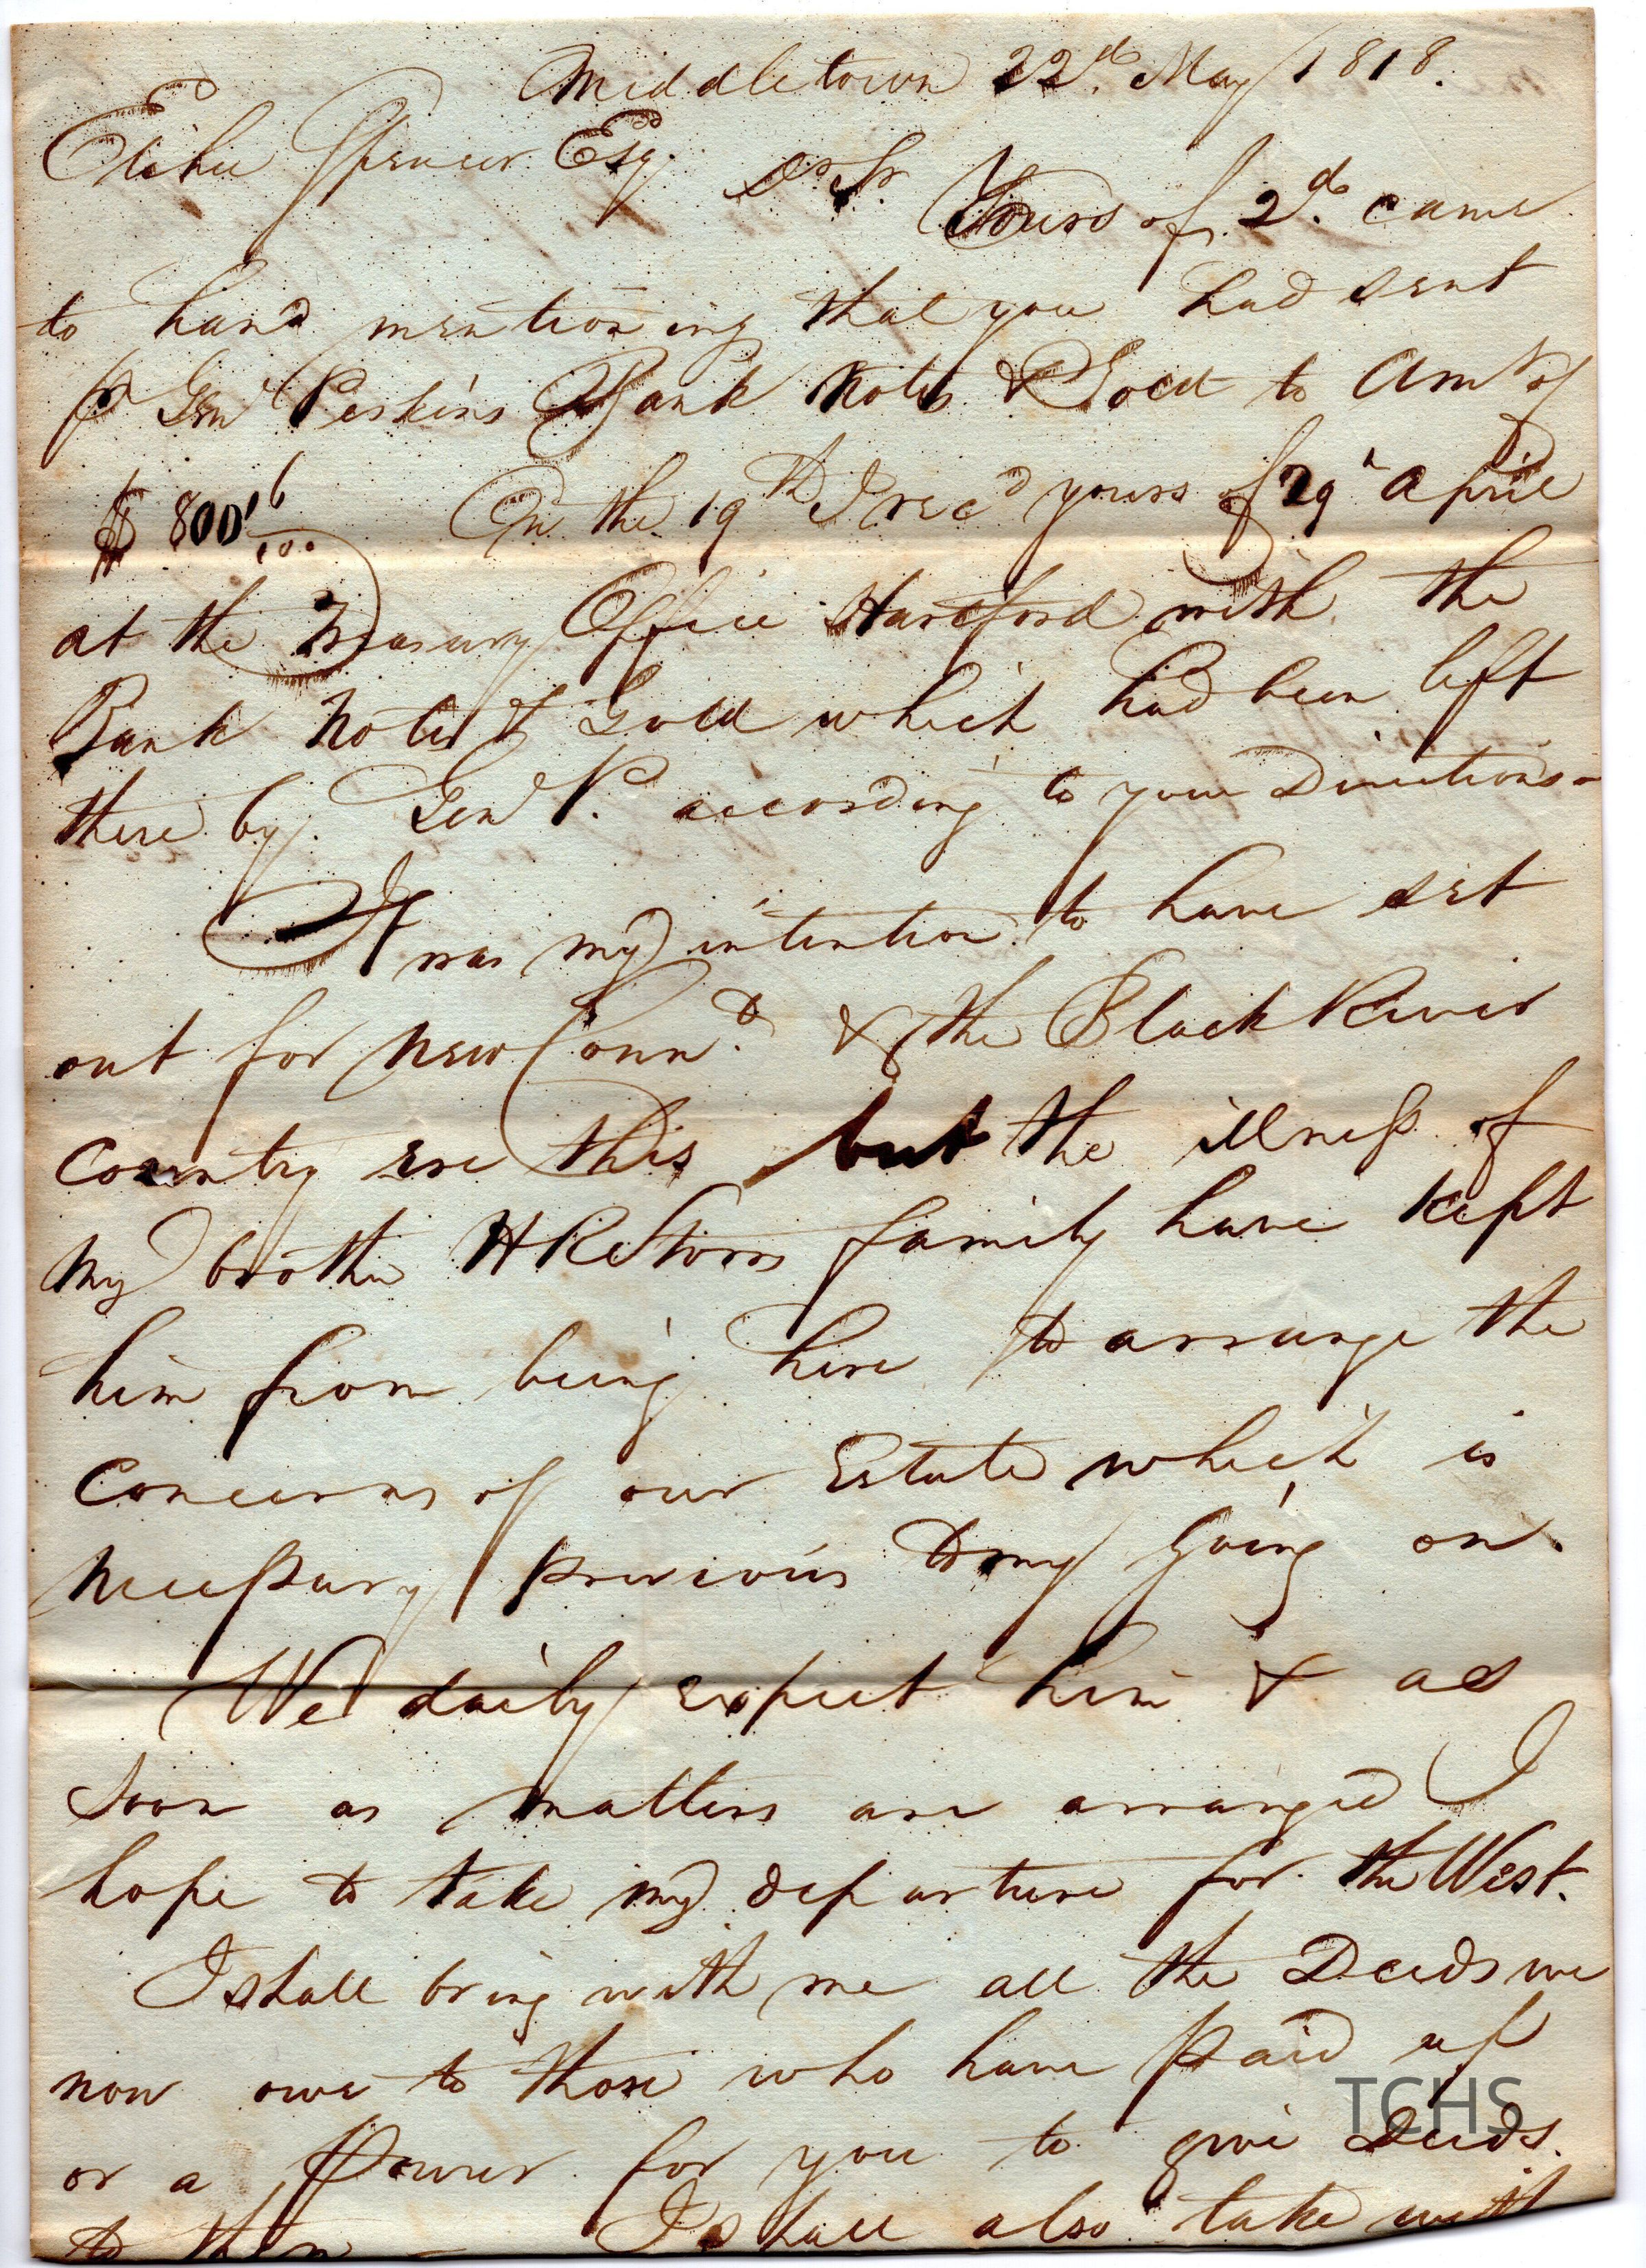 Middletown 22d. May 1818.
Elihu Spencer Esqr. Dr Sr.
Yours of 2d. came
to hand mentioning that you had sent
pr Genl Perkins Bank Notes & Gold to Amt of
$ 800 16/100 On the 19th I recd yours of 29h April
at the Treasury Office Hartford with the
Bank Notes & Gold which had been left
there by Genl P. according to your Directions-
It was my intention to have set
out for New Connt. & the Black River
Country ere this but the illness of
my brother H R Storrs family have kept
him from being here to arrange the
concerns of our Estate which is
necessary previous to my going on.
We daily expect him & as
soon as matters are arranged I
hope to take my departure for the West.
I shall bring with me all the Deeds we
now owe to those who have paid up
or a Power for you to give Deeds.
to them - I shall also take with
TCHS